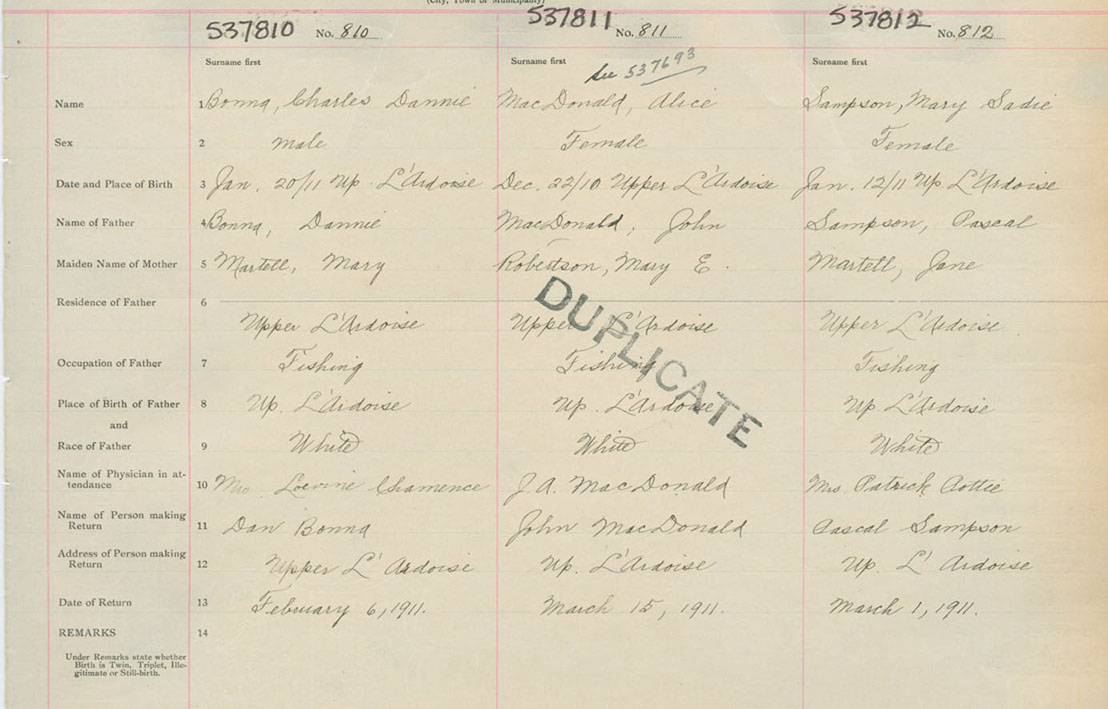 (City, Town or Municipality)
537810 No. 810 537811 No. 811 537812 No. 812
Surname first Surname first Surname first
See 537693
Name 1 Bonna, Charles Dannie MacDonald, Alice Sampson, Mary Sadie
Sex 2 male Female Female
Date and Place of Birth 3 Jan. 20/11 Up. L'Ardoise Dec. 22/10 Upper L'Ardoise Jan. 12/11 Up L'Ardoise
Name of Father 4 Bonna, Dannie MacDonald, John Sampson, Pascal
Maiden Name of Mother 5 Martell, Mary Robertson, Mary E. Martell, Jane
Residence of Father 6
Upper L'Ardoise Upper L'Ardoise Upper L'Ardoise
DUPLICATE
Occupation of Father 7 Fishing Fishing Fishing
Place of Birth of Father 8 Up. L'Ardoise Up. L'Ardoise Up L'Ardoise
and
Race of Father 9 White White White
Name of Physician in at-
tendance 10 J.A. MacDonald Mrs. Patrick
Name of Person making
Return 11 Dan Bonna John MacDonald Pascal Sampson
Address of Person making
Return 12 Upper L'Ardoise Up. L'Ardoise Up. L'Ardoise
Date of Return 13 February 6, 1911. March 15, 1911. March 1, 1911.
REMARKS 14
Under Remarks state whether
Birth is Twin, Triplet, Ille-
gitimate or Still-birth.